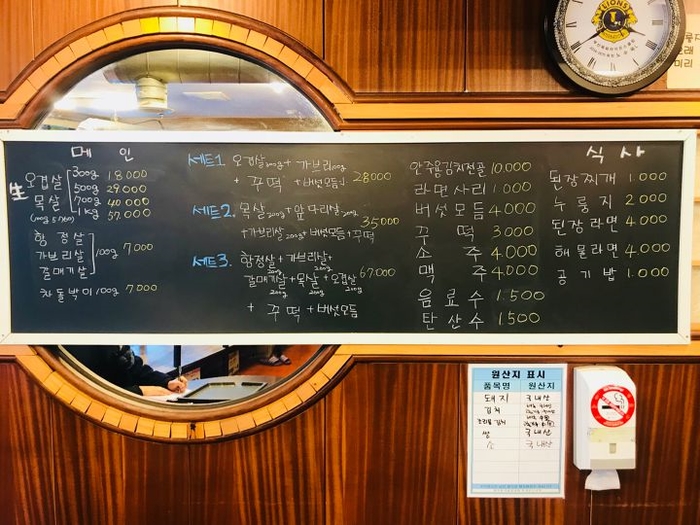 메 인
生
오겹살
목살
(100g 5,700)
300g 18000
500g 29.000
700g 40.000
1kg 57.000
항 정살
가브리살
갈매기살
100g 7.000
차돌박이 100g 7.000
세트1 오겹살200g + 가브리100g
+ 꾸떡 + 버섯모듬 28000
세트2. 목살200g + 앞다리살200g
+ 가브리살200g + 버섯모듬 + 꾸떡 35000
세트3. 항정살200g + 가브리살200g +
갈매기살200g + 목살200g + 오겹살200g 67.000
+ 꾸떡 + 버섯모듬
안주용김치전골 10.000
라면사리 1.000
버섯모듬 4.000
꾸 떡 3.000
소 주 4.000
맥 주 4.000
음료수 1.500
탄산수 1.500
식 사
된장찌개 1.000
누룽지 2.000
된장라면 4.000
해물라면 4.000
공기밥 1.000
LIONS
원산지 표시
품목명 원산지
돼지 국내산
김치
쌀 국내산
소 국내산